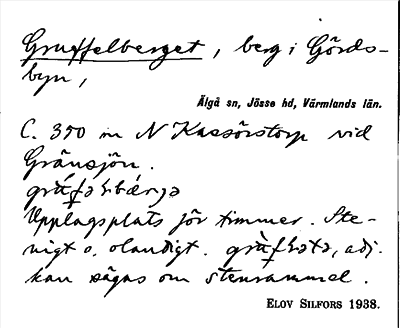 Gruffelberget, berg i Gårds-
byn,
Älgå sn, Jösse hd, Värmlands län.
C. 350 m N Kassörstorp vid
Gränsjön.
Upplagsplats för timmer. Ste-
nigt o. olandigt. adj.
kan sägas om stensammel.
ELOV SILFORS 1938.